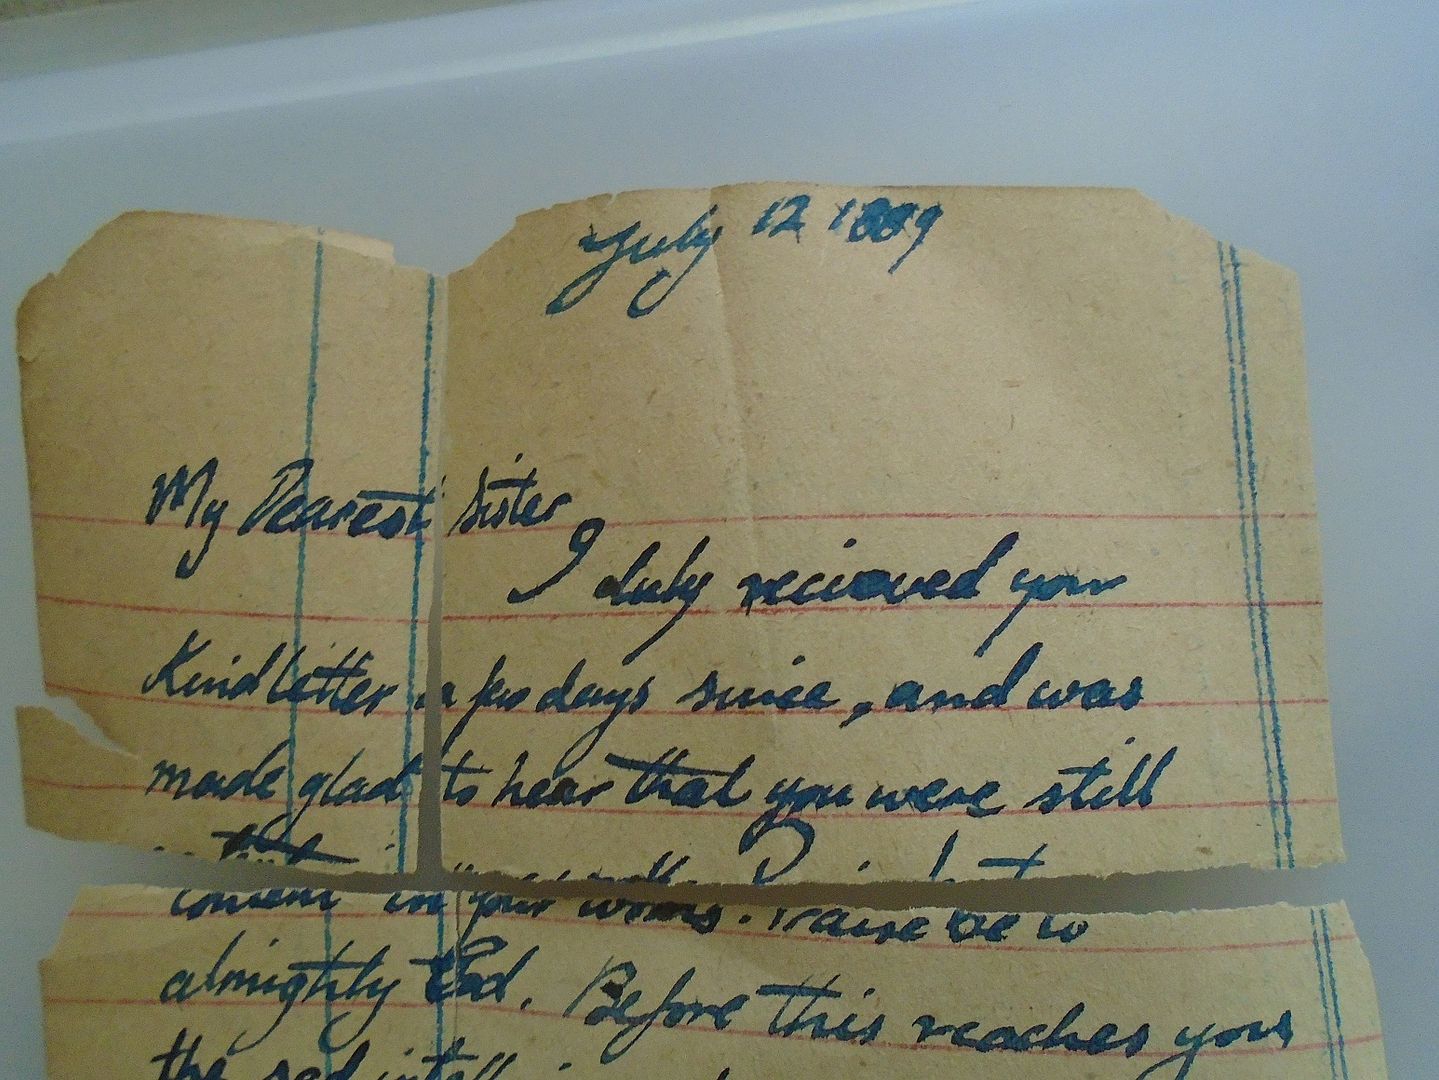 July 12 1889
My Dearest Sister
I duly recieved your
Kind letter a few days since, and was
made glad to hear that you were still
content in your works. Praise be to
almighty God. Before this reaches you
the sad